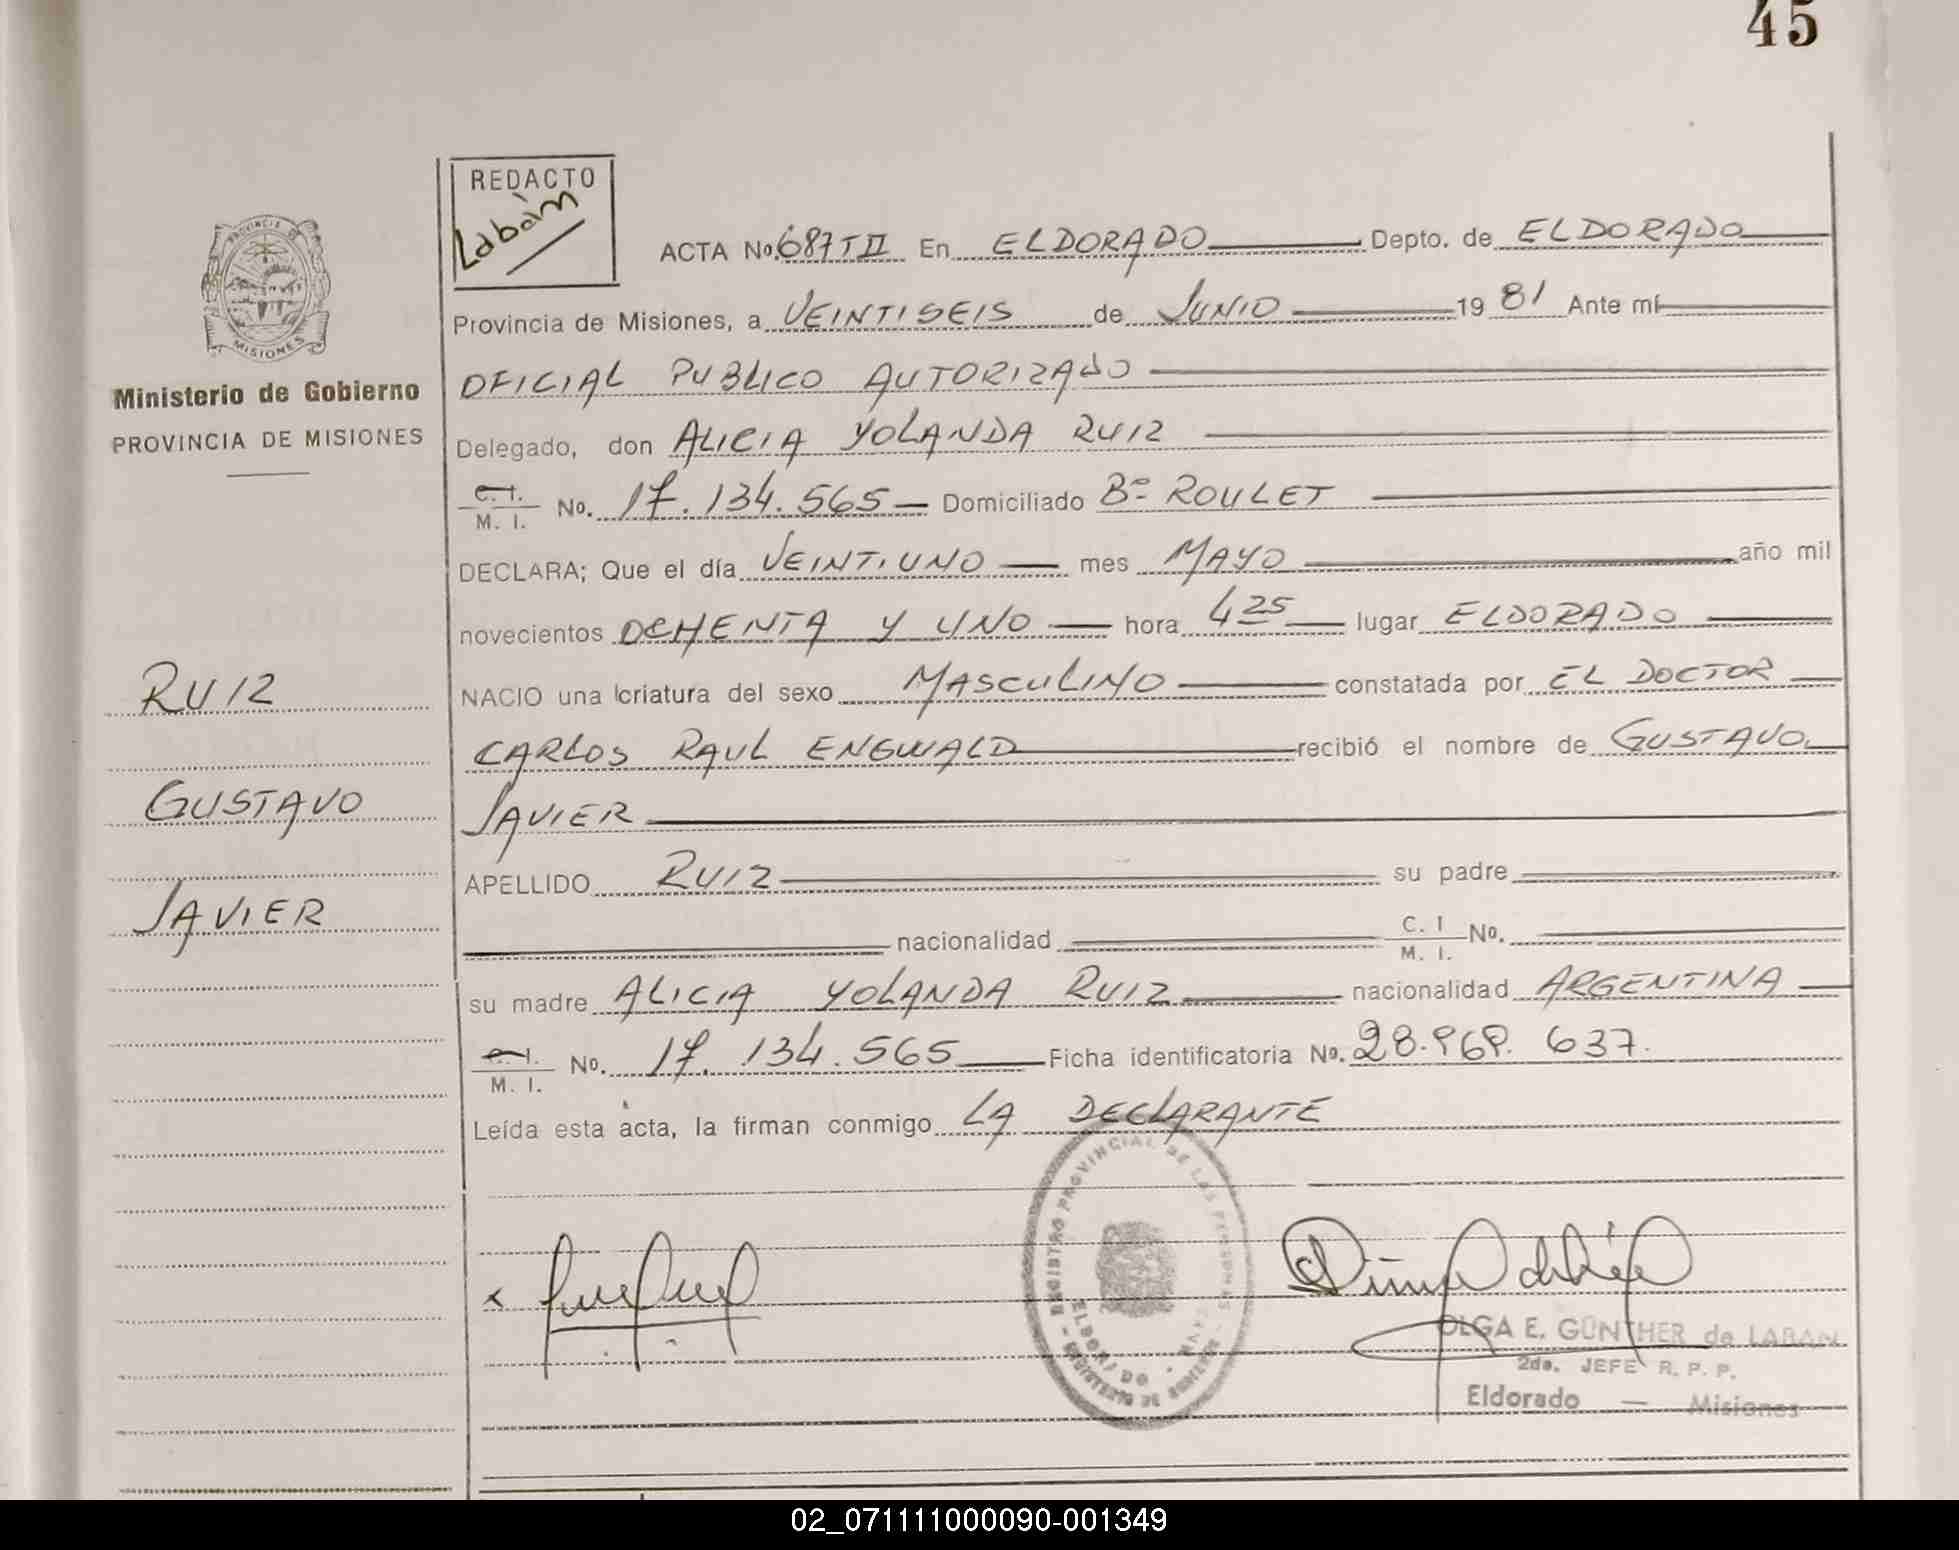 45
REDACTO
Labán
PROVINCIA DE
MISIONES
Ministerio de Gobierno
PROVINCIA DE MISIONES
ACTA No. 687 T II En ELDORADO Depto. de ELDORADO
Provincia de Misiones, a VEINTISEIS de JUNIO 19 81 Ante mí
OFICIAL PUBLICO AUTORIZADO
Delegado, don ALICIA YOLANDA RUIZ
C. I. / M. I. No. 17.134.565 Domiciliado Bº ROULET
DECLARA; Que el día VEINTIUNO mes MAYO año mil
novecientos OCHENTA Y UNO hora 4 25 lugar ELDORADO
NACIO una criatura del sexo MASCULINO constatada por EL DOCTOR
CARLOS RAUL ENGWALD recibió el nombre de GUSTAVO
JAVIER
APELLIDO RUIZ su padre
nacionalidad C. I / M. I. No.
su madre ALICIA YOLANDA RUIZ nacionalidad ARGENTINA
C. I. / M. I. No. 17.134.565 Ficha identificatoria No. 28.968.637.
Leída esta acta, la firman conmigo LA DECLARANTE
RUIZ
GUSTAVO
JAVIER
x
REGISTRO PROVINCIAL DE LAS PERSONAS
ELDORADO
MINISTERIO DE GOBIERNO
OLGA E. GÜNTHER de LABAN
2da. JEFE R. P. P.
Eldorado — Misiones
02_071111000090-001349